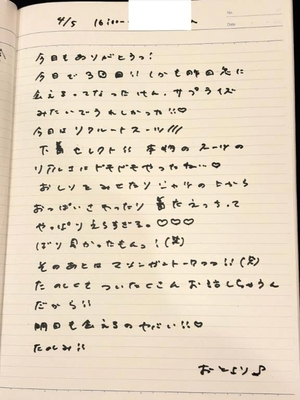 4/5 16:00
No.
Date
今日もありがとうっ!
今日で3回目!! しかも昨日急に
会えるってなったけん、サプライズ
みたいでうれしかった!!♡
今日はリクルートスーツ///
下着セレクト!! 本物のスーツの
リアルさにドキドキやったねい♡
おしりとみせたりシャツの上から
おっぱいさわったり 着たえっちって
やっぱりえろすぎる。♡♡♡
ばり良かったもんっ!(笑)
そのあとは マシンガントークっっ!!(笑)
たのしくて ついたくさん お話しちゃうん
だから!!
明日も会えるのやばい!!♡
たのしみ!!